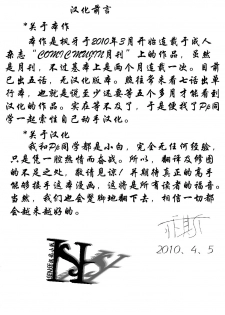 汉化前言
*关于本作
本作是枫牙于2010年3月开始连载于成人
杂志“COMIC MUJIN月刊”上的作品，虽然
是月刊，不过基本上是两个月连载一次。目前
已出五话，无汉化版本。照往常来看七话出单
行本，也就是说至少还要等五个多月才能看到
汉化的作品。实在等不及了，于是便找了Pp同
学一起索性自己动手汉化。
*关于汉化
我和Pp同学都是小白，完全无任何经验，
只是凭一腔热情而奋战。所以，翻译及修图
的不足之处，敬请见谅！并期待真正的高手
能够接手这本漫画，这将是所有读者的福音。
当然，我们也会蹩脚地翻下去，相信一切都
会越来越好的。
2010.4.5